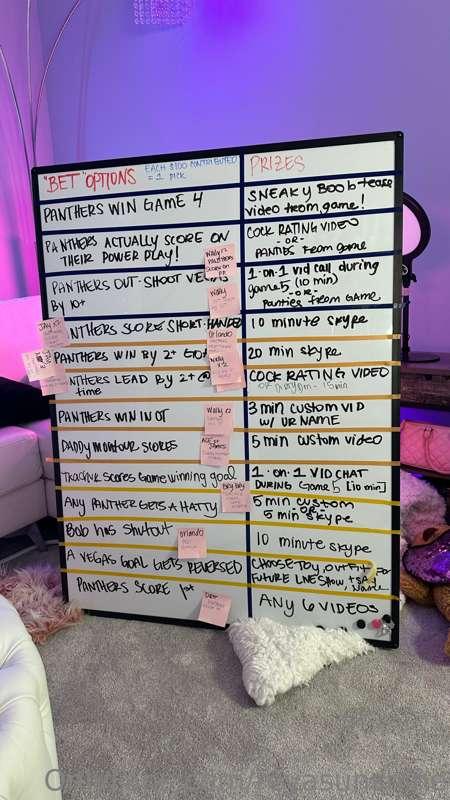 "BET" OPTIONS
EACH $100 CONTRIBUTED
= 1 PICK
PRIZES
PANTHERS WIN GAME 4
SNEAKY BOOb tease
video from game!
PANTHERS ACTUALLY SCORE ON
THEIR POWER PLAY!
COCK RATING VIDEO
- OR -
PANTIES From game
PANTHERS OUT-SHOOT
By 10+
1-on-1 vid call during
game 5 (10 min)
- OR -
Panties From GAME
NTHERS SCORE SHORT-HANDED
10 minute skype
PANTHERS WIN BY 2+
20 min skype
NTHERS LEAD BY 2+ @
time
COCK RATING VIDEO
PANTHERS WIN IN OT
3 min custom VID
W/ UR NAME
DADDY montour SCORES
5 min custom video
TKachuk scores Game winning goal
1-on-1 VID CHAT
DURING Game 5 [10 min]
ANY PANTHER GETS A HATTY
5 min custom
OR
5 min skype
Bob has shutout
10 minute skype
A VEGAS GOAL GETS REVERSED
CHOOSE TOY, OUTFIT For
FUTURE LIVE Show, +
Name
PANTHERS SCORE 1st
ANY 6 VIDEOS
Wally
Orlando
Wally
Orlando